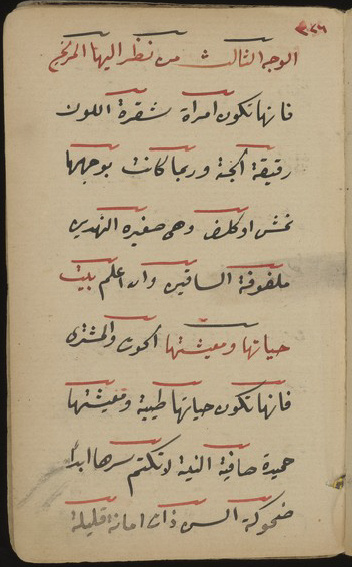 ٣٢٦
الوجه الثالث من نظر اليها المريخ
فانها تكون امراة شقرة اللون
رقيقة الجثة وربما كانت بوجهها
نمش او كلف وهى صغيرة النهدين
ملفوفة الساقين وان اعلم بيت
حياتها ومعيشتها الحوت والمشترى
فانها تكون حياتها طيبة ومعيشتها
حميدة صافية النية لا تكتم سرها ابدا
ضحوكة السن ذات امانة قليلة